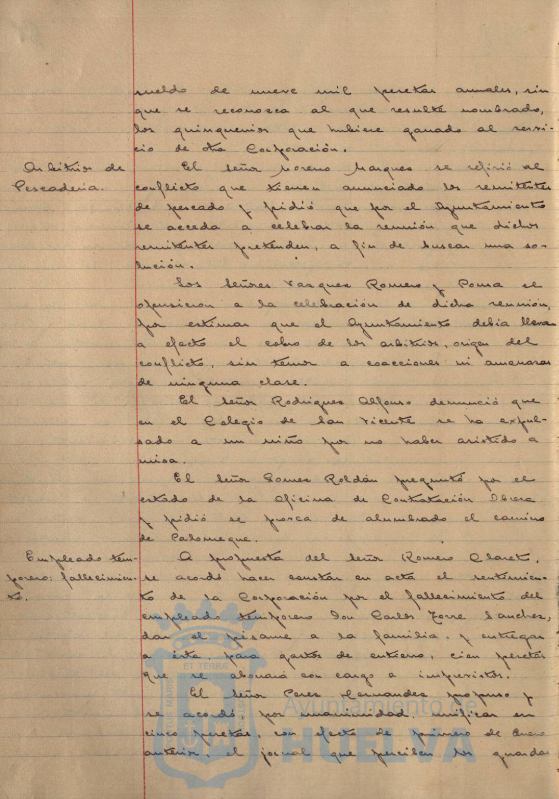 sueldo de nueve mil pesetas anuales, sin
que se reconozca al que resulte nombrado,
los quinquenios que hubiere ganado al servi-
cio de otra Corporación.
Arbitrios de
Pescadería.
El Señor Moreno Marquez se refirió al
conflicto que tienen anunciado los remitentes
de pescado y pidió que por el Ayuntamiento
se acceda a celebrar la reunión que dichos
remitentes pretenden, a fin de buscar una so-
lución.
Los Señores Vazquez Romero y Ponsa se
opusieron a la celebración de dicha reunión,
por estimar que el Ayuntamiento debía llevar
a efecto el cobro de los arbitrios, origen del
conflicto, sin temor a coacciones ni amenazas
de ninguna clase.
El Señor Rodriguez Alfonso denunció que
en el Colegio de San Vicente se ha expul-
sado a un niño por no haber asistido a
misa.
El Señor Gomez Roldán preguntó por el
estado de la Oficina de Contratación Obrera
y pidió se provea de alumbrado el camino
de Palomeque.
Empleado tem-
porero: fallecimien-
to.
A propuesta del Señor Romero Claret,
se acordó hacer constar en acta el sentimien-
to de la Corporación por el fallecimiento del
empleado temporero Don Carlos Torre Sanchez,
dar el pésame a la familia, y entregar
a ésta, para gastos de entierro, cien pesetas
que se abonará con cargo a imprevistos.
El Señor Perez Hernandez propuso y
se acordó, por unanimidad, unificar en
cinco pesetas, con efecto de primero de Enero
anterior, el jornal que perciben los guardas
Ayuntamiento de
HUELVA